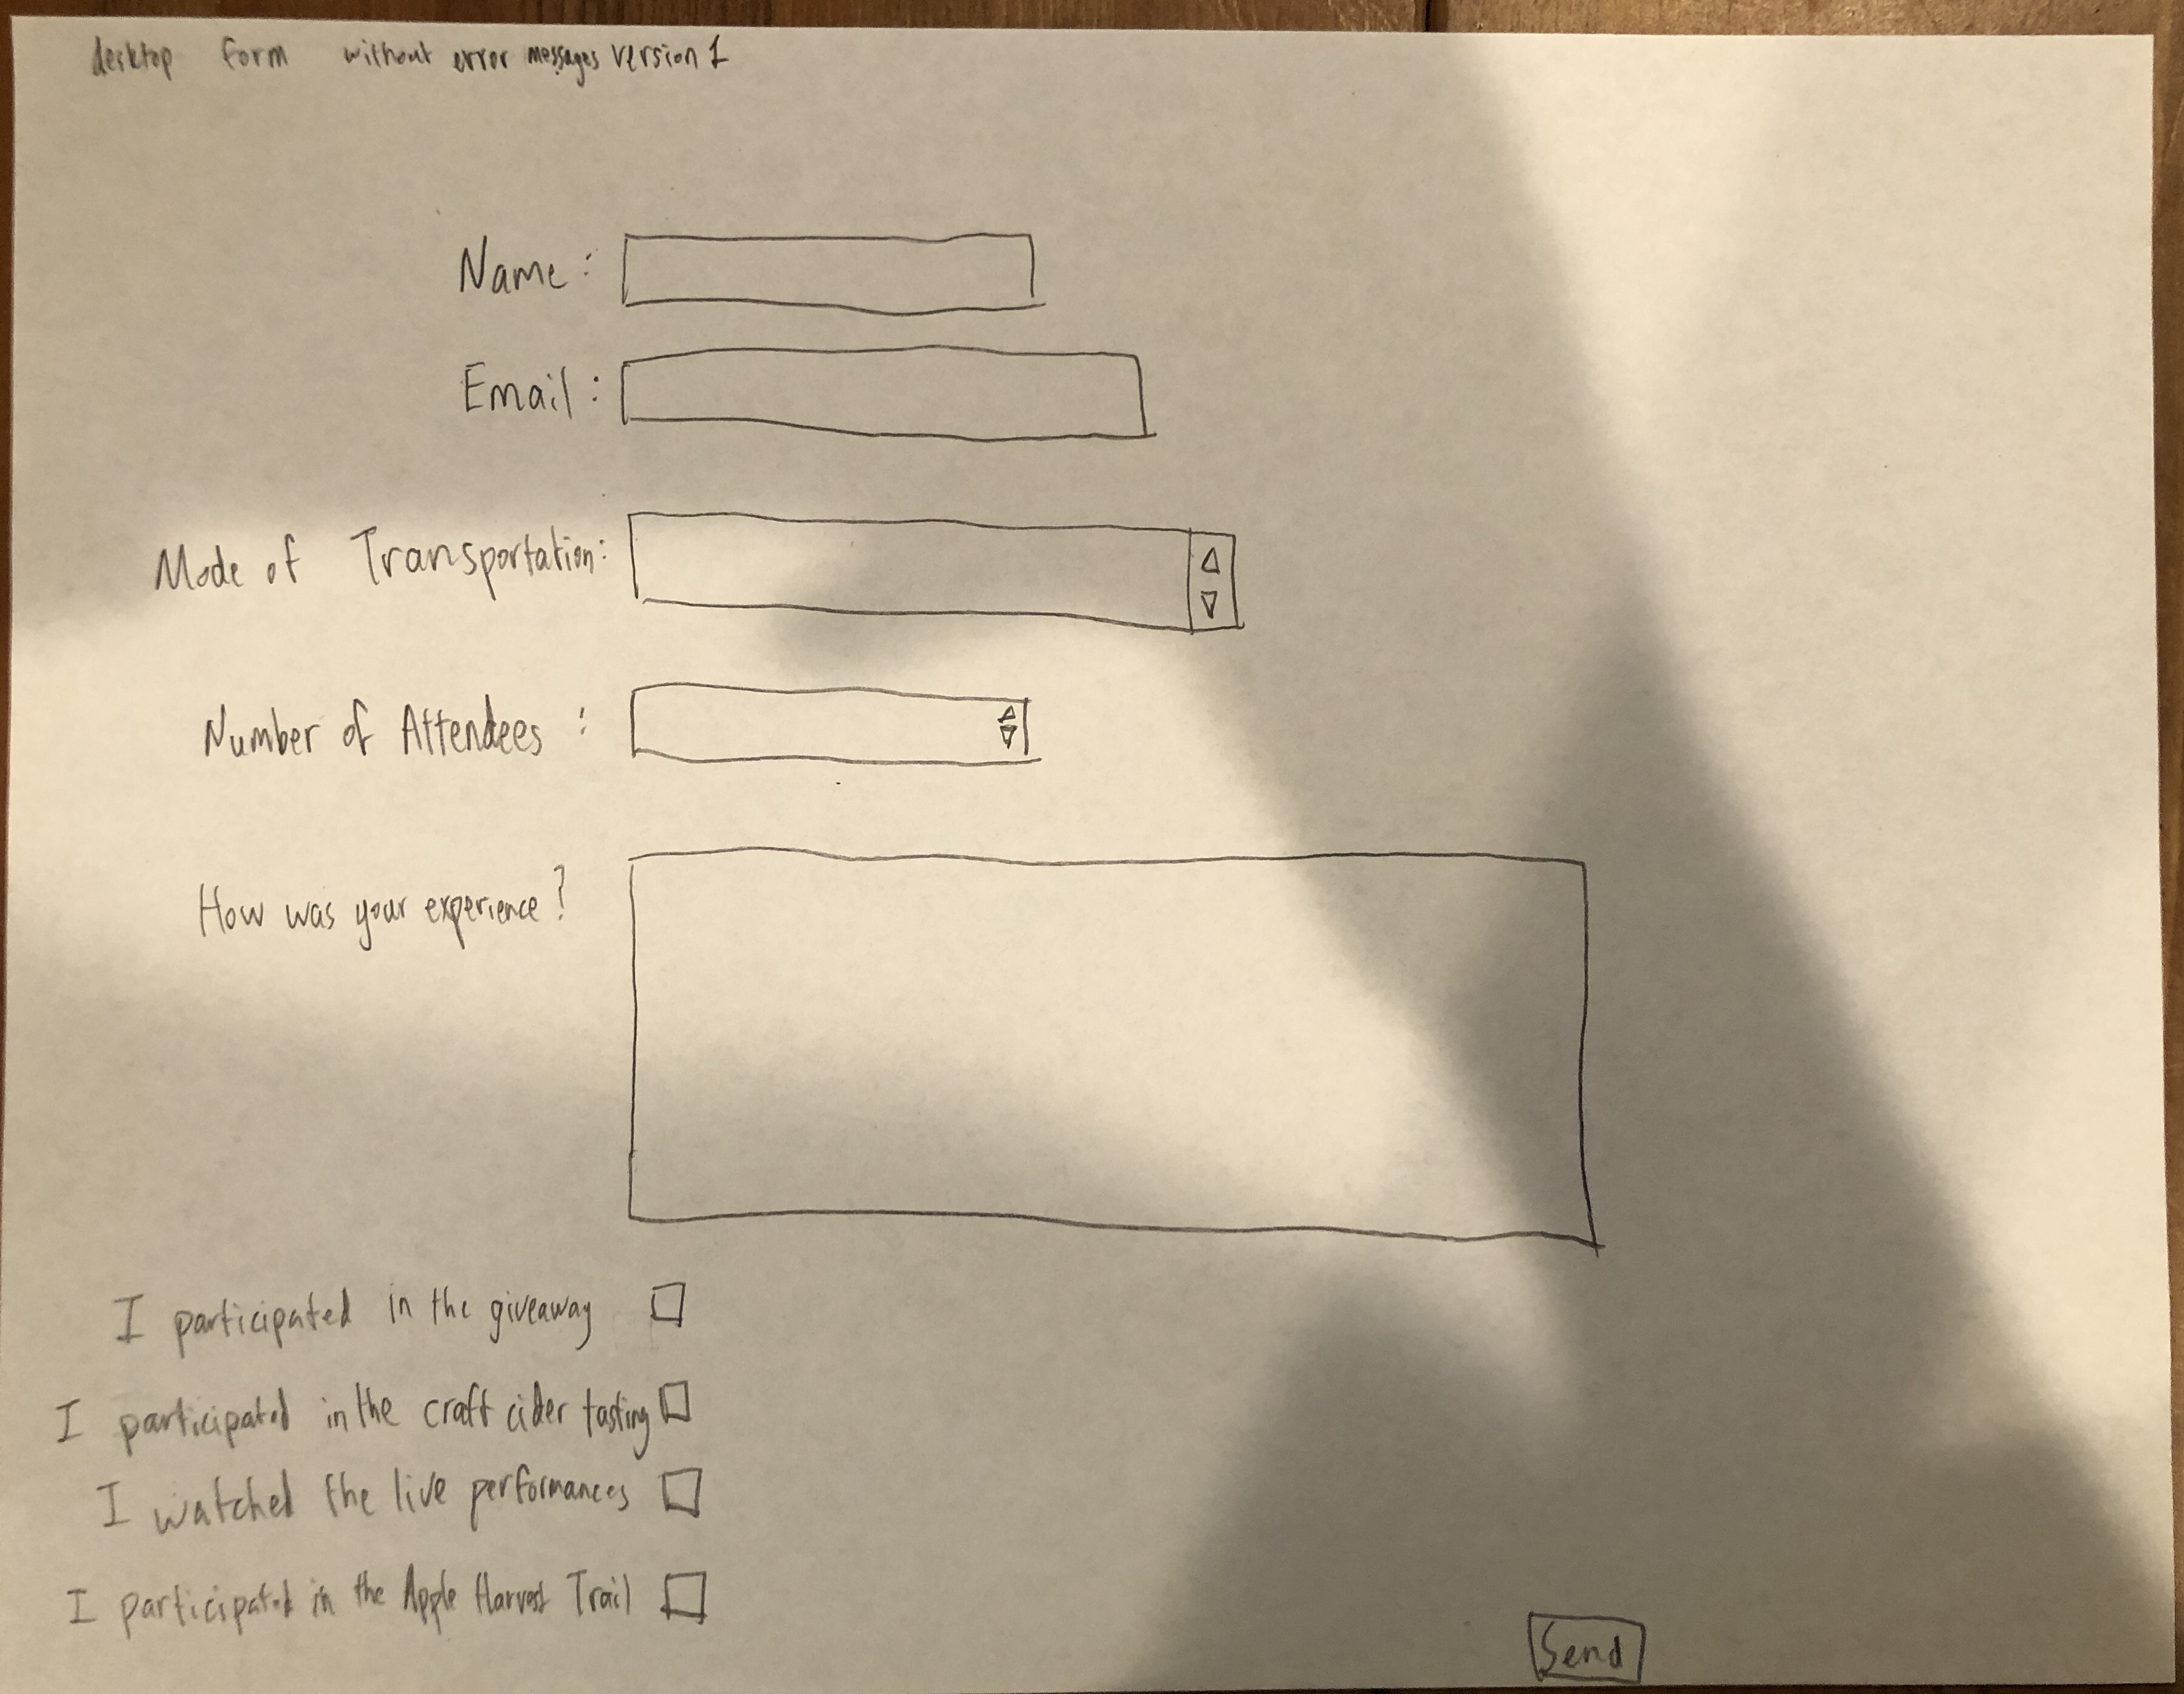 desktop form without error messages version 1
Name:
Email:
Mode of Transportation:
Number of Attendees:
How was your experience?
I participated in the giveaway
I participated in the craft cider tasting
I watched the live performances
I participated in the Apple Harvest Trail
Send